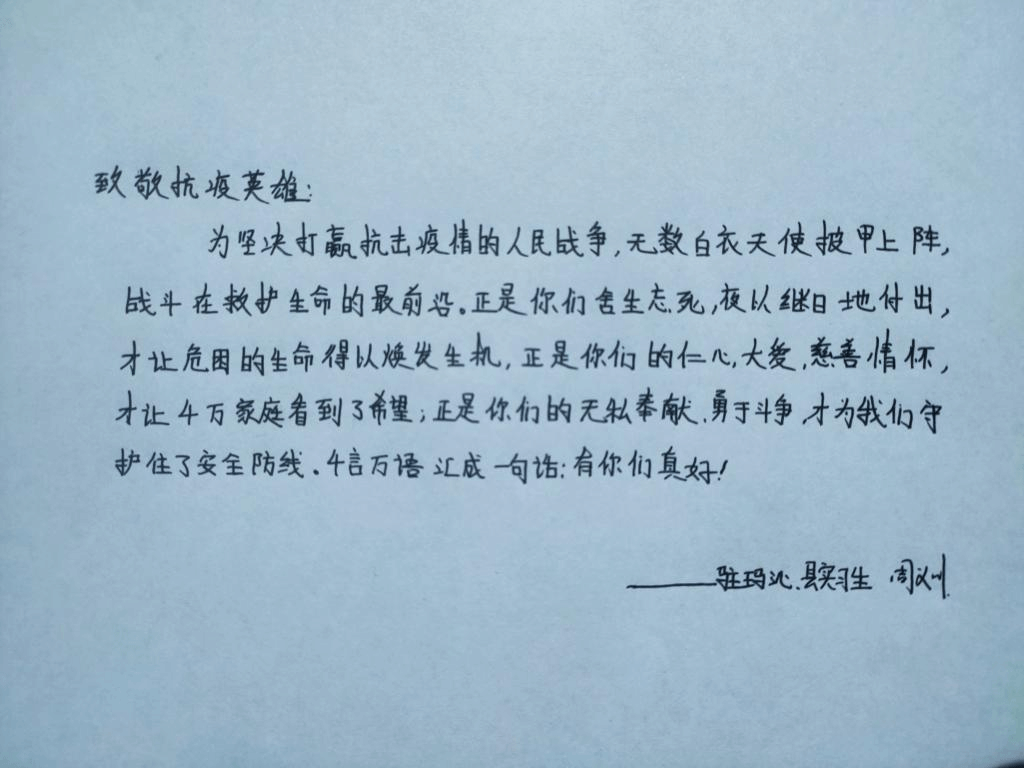 致敬抗疫英雄:
为坚决打赢抗击疫情的人民战争,无数白衣天使披甲上阵,
战斗在救护生命的最前沿。正是你们舍生忘死,夜以继日地付出,
才让危困的生命得以焕发生机,正是你们的仁心,大爱,慈善情怀,
才让千万家庭看到了希望;正是你们的无私奉献.勇于斗争,才为我们守
护住了安全防线。千言万语汇成一句话:有你们真好!
——驻玛沁县实习生 周